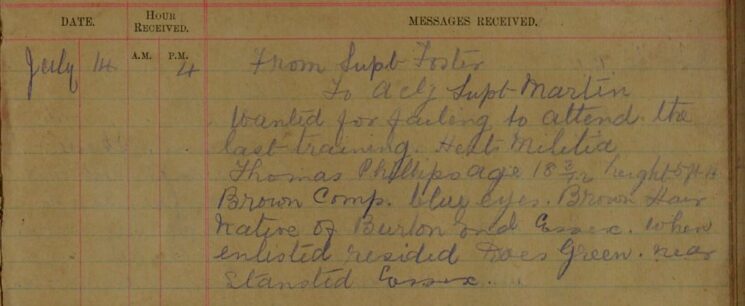 DATE. HOUR RECEIVED. MESSAGES RECEIVED.
A.M. P.M.
July 14 4 From Supt Foster
To Actg Supt Martin
Wanted for failing to attend the
last training. Herts Militia
Thomas Phillips age 18 3/12 height 5 ft 4
Brown Comp. blue eyes. Brown Hair
Native of Burton End Essex. when
enlisted resided Does Green. near
Stansted Essex.